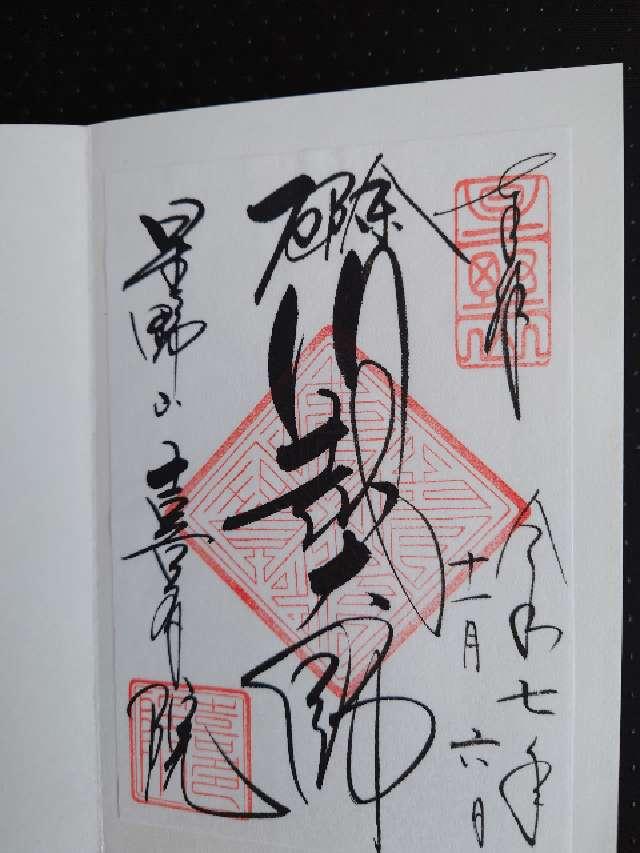 奉拝
令和七年
十一月六日
厄除
川越大師
星野山
喜多院
星野山